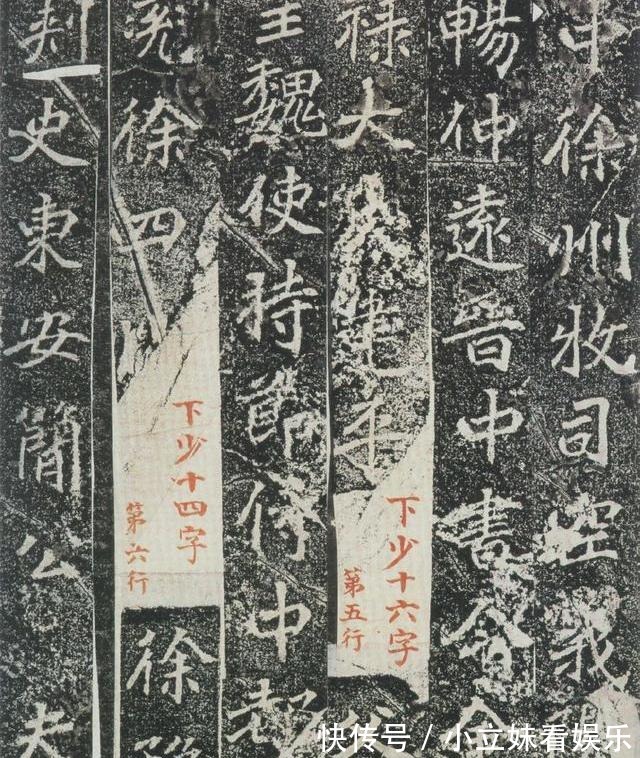 中徐州牧司空
暢仲遠晋中書令
祿大夫建平
下少十六字
第五行
魏使持節侍中都
兖徐四州
下少十四字
第六行
徐
刺史東安簡公夫
快传号 / 小立妹看娱乐